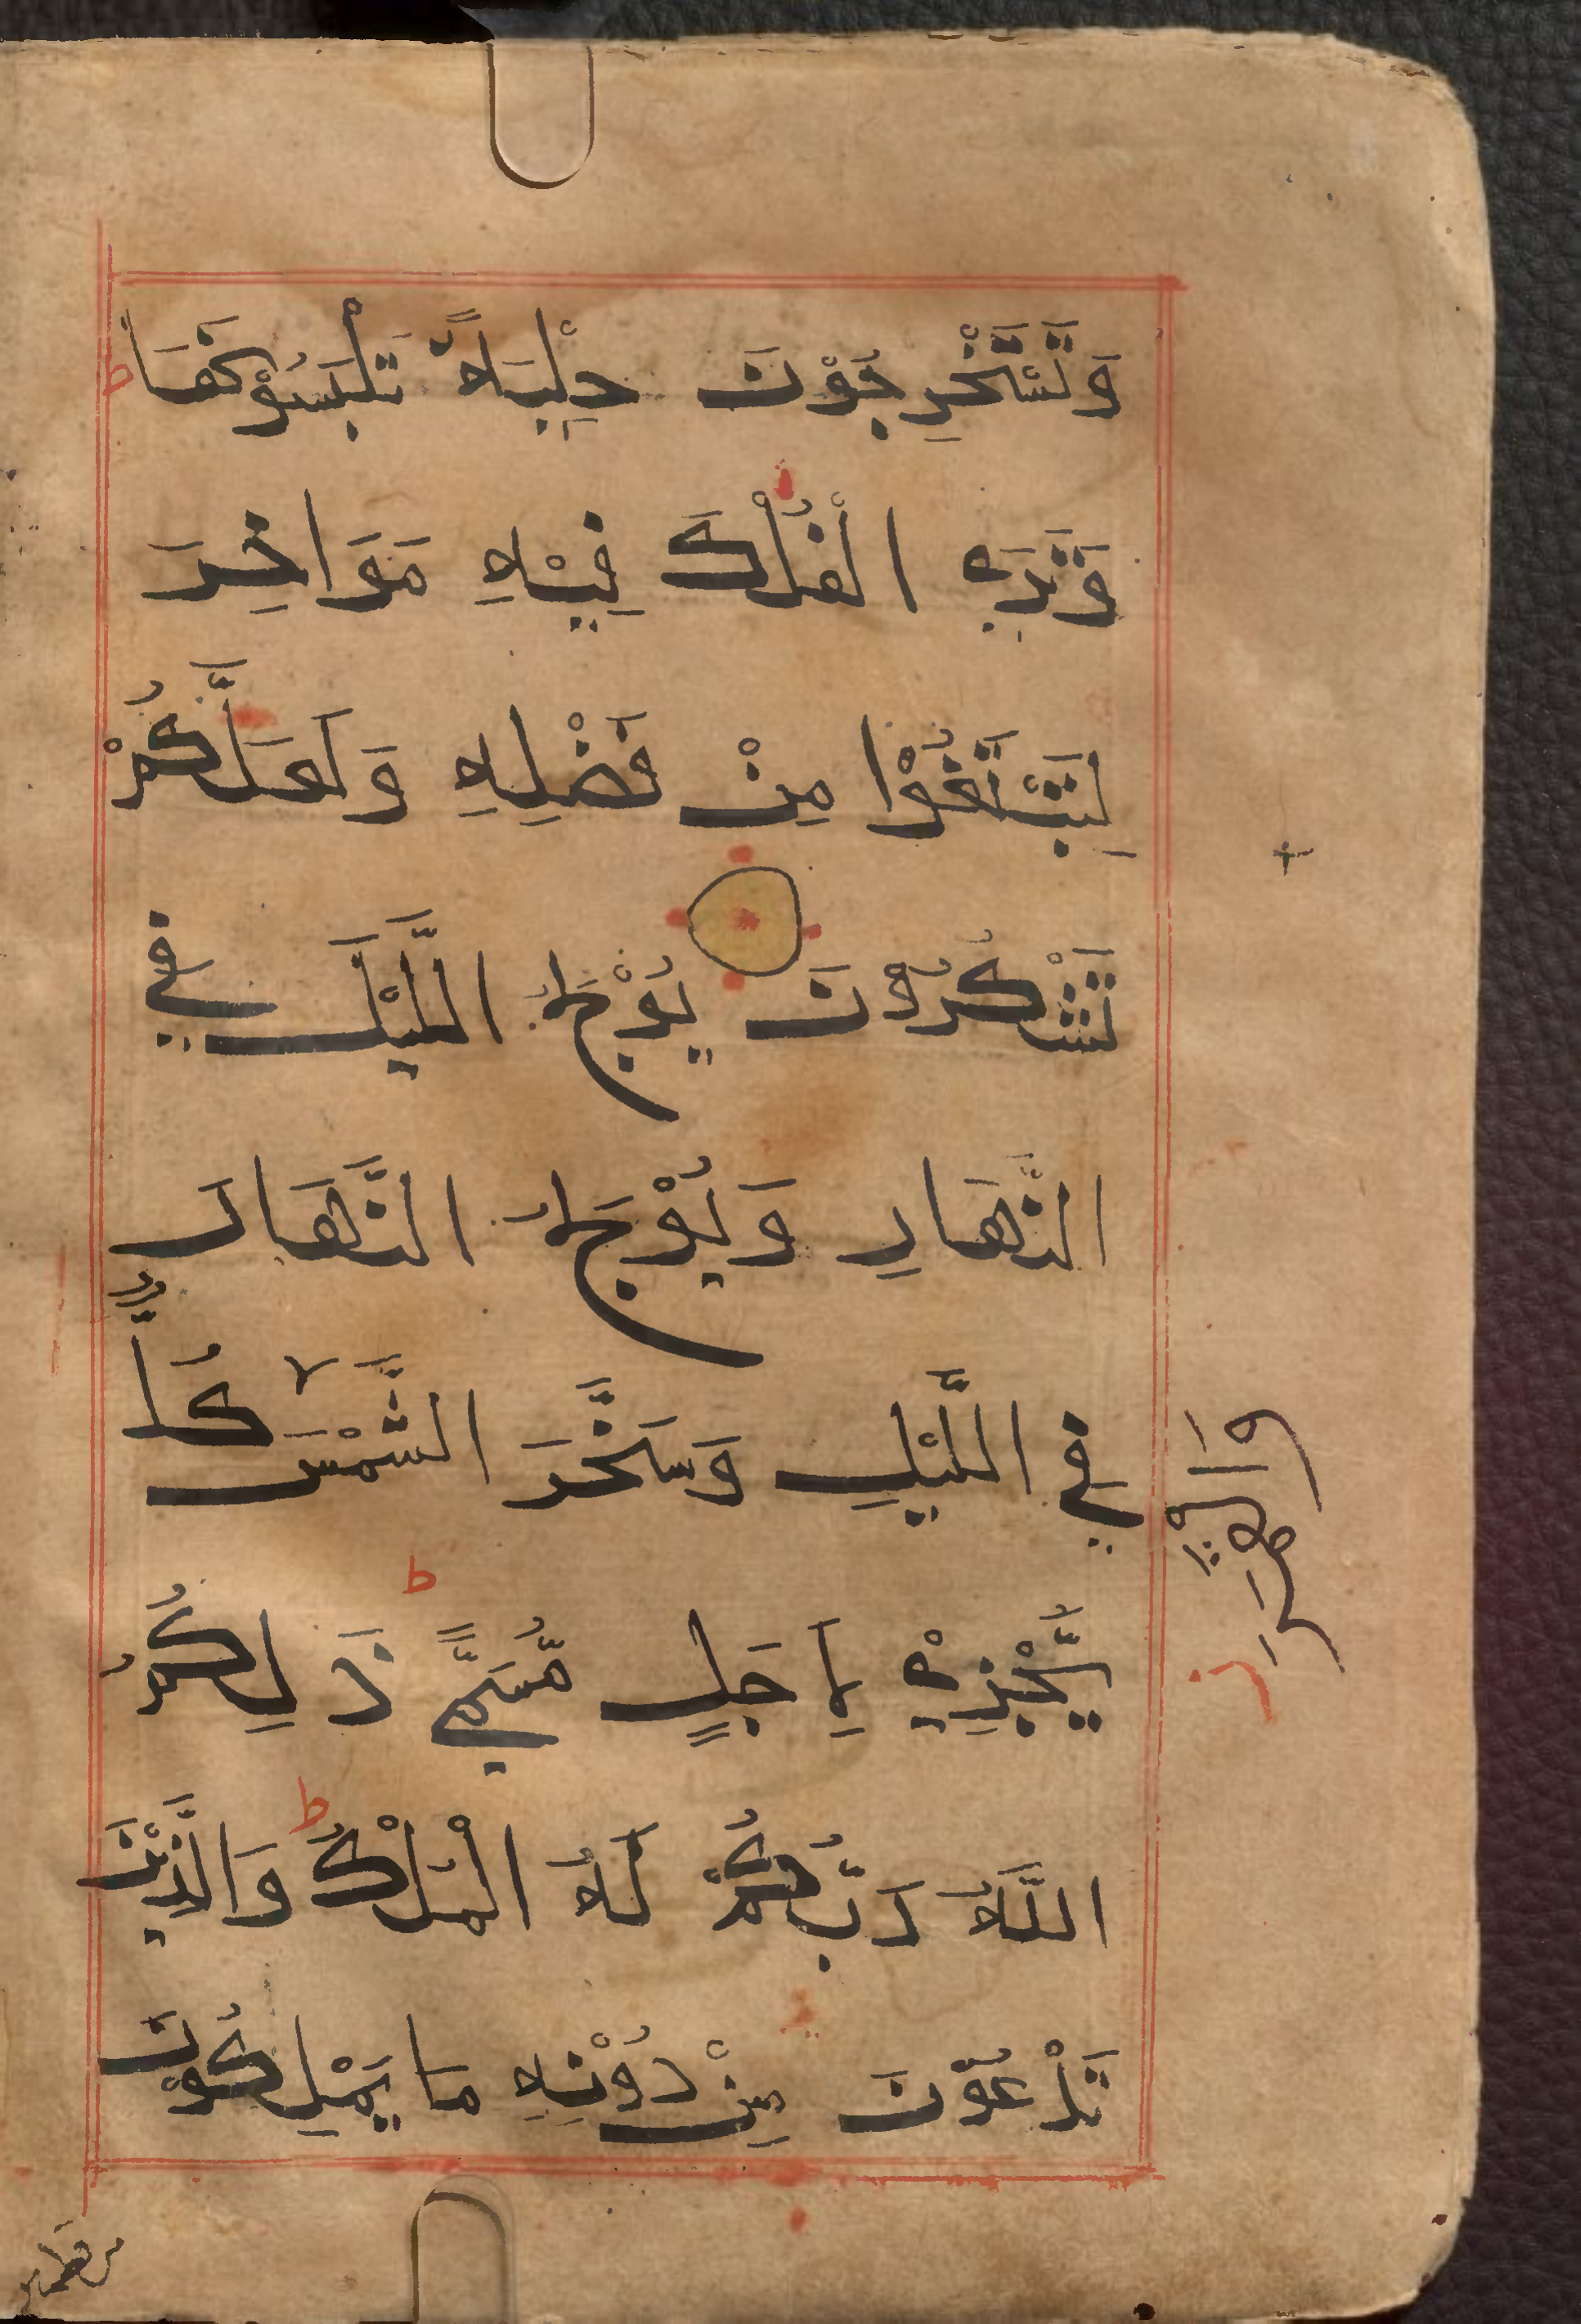 وَتَسْتَخْرِجُوْنَ حِلْيَةً تَلْبَسُوْنَهَا ط
وَتَرَي الْفُلْكَ فِيْهِ مَوَاخِرَ
لِتَبْتَغُوْا مِنْ فَضْلِهِ وَلَعَلَّكُمْ
تَشْكُرُوْنَ يُوْلِجُ الَّيْلَ فِي
النَّهَارِ وَيُوْلِجُ النَّهَارَ
فِي الَّيْلِ وَسَخَّرَ الشَّمْسَ كُلٌّ
وَالْقَمَرَ
يَّجْرِيْ لِاَجَلٍ مُّسَمًّي ط ذَلِكُمُ
اللَّهُ رَبُّكُمْ لَهُ الْمُلْكُ ط وَالَّذِيْنَ
تَدْعُوْنَ مِنْ دُوْنِهِ مَا يَمْلِكُوْنَ
من قطمير